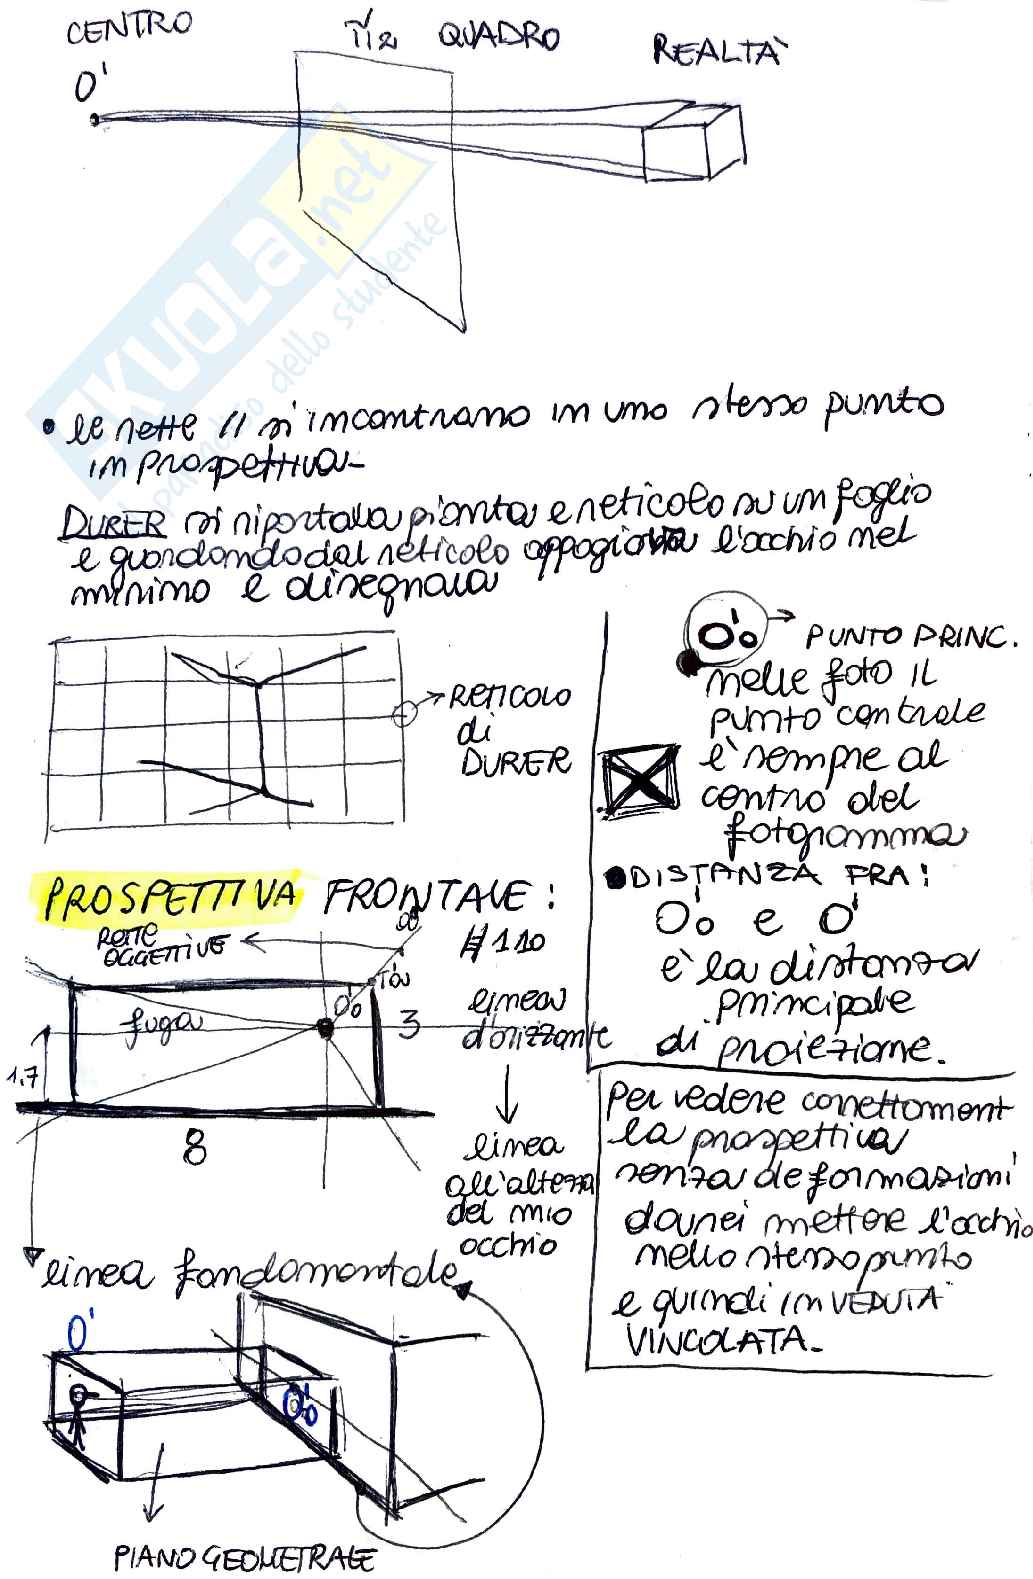 CENTRO
π2 QUADRO
REALTÀ
O'
SKUOLA.net
il paradiso dello studente
• le rette // si incontrano in uno stesso punto
in prospettiva-
DURER si riportava pianta e reticolo su un foglio
e guardando dal reticolo appogiava l'occhio nel
mirino e disegnava
RETICOLO
di
DURER
O'o → PUNTO PRINC.
nelle foto il
punto centrale
è sempre al
centro del
fotgramma
• DISTANZA FRA:
O'o e O'
è la distanza
principale
di proiezione.
PROSPETTIVA FRONTALE:
RETTE
OGGETTIVE
#110
O'o
fuga
3
linea
d'orizzonte
1,7
8
linea
all'altezza
del mio
occhio
Per vedere correttament
la prospettiva
senza deformazioni
dovrei mettere l'occhio
nello stesso punto
e quindi in VEDUTA
VINCOLATA.
linea fondamentale
O'
O'o
PIANO GEOMETRALE